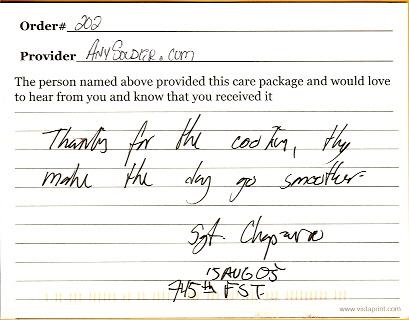 Order# 202
Provider AnySoldier.com
The person named above provided this care package and would love
to hear from you and know that you received it
Thanks for the cookies, they
make the day go smoother
Sgt. Chaparro
15 AUG 05
745th FST.
www.vistaprint.com